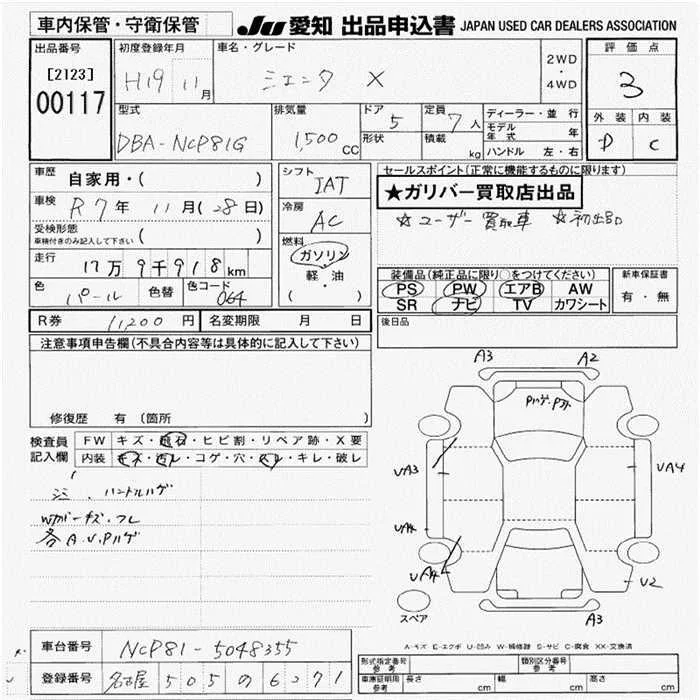 車内保管・守衛保管
JU 愛知 出品申込書 JAPAN USED CAR DEALERS ASSOCIATION
出品番号 [2123] 00117
初度登録年月 H19 11月
車名・グレード シエンタ X
2WD・4WD
評価点 3
外装 D 内装 C
型式 DBA-NCP81G
排気量 1,500cc
ドア 5 形状
定員 7人 積載 kg
ディーラー・並行
モデル年式 年
ハンドル 左・右
車歴 自家用・( )
車検 R7年 11月(28日)
受検形態 ( )
車検付きのみ記入して下さい
走行 17万9千918km
色 パール 色替 色コード 064
シフト IAT
冷房 AC
燃料 ガソリン・軽・油 ( )
セールスポイント(正常に機能するものに限ります)
★ガリバー買取店出品
☆ユーザー買取車 ☆初出品
装備品(純正品に限り○をつけてください)
PS PW エアB AW
SR ナビ TV カワシート
新車保証書 有・無
R券 11200円 名変期限 月 日
後日品
注意事項申告欄(不具合内容等は具体的に記入して下さい)
修復歴 有(箇所 )
検査員記入欄
FW キズ・飛石・ヒビ割・リペア跡・X要
内装 キズ・汚レ・コゲ・穴・スレ・キレ・破レ
ハンドルハゲ
キズ・フレ
各A.U.Pハゲ
A3 A2
UA3 UA4
UA4
UA4 U2
A3
スペア
A-キズ E-エクボ U-凹み W-補修跡 S-サビ C-腐食 XX-交換済
車台番号 NCP81-5048355
登録番号 名古屋 505 の 6271
型式指定番号 参考 類別区分番号 参考
車庫証明用 参考 長さ cm 幅 cm 高さ cm